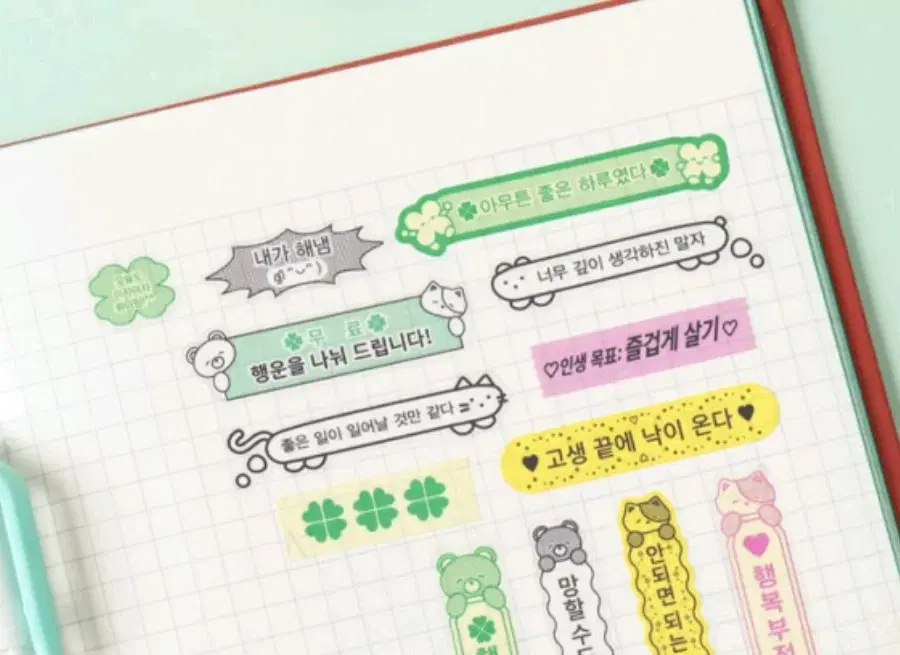 아무튼 좋은 하루였다
내가 해냄
너무 깊이 생각하진 말자
무 료
행운을 나눠 드립니다!
♡인생 목표: 즐겁게 살기♡
좋은 일이 일어날 것만 같다
고생 끝에 낙이 온다
망할수
안되면 되는
행복부